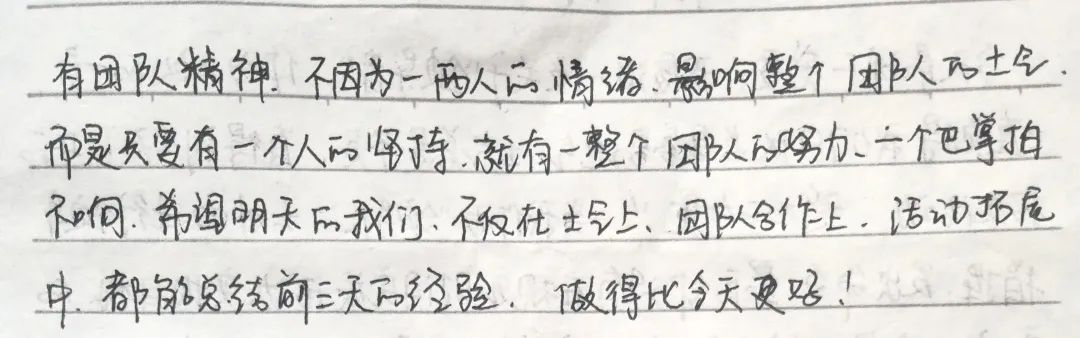 有团队精神.不因为一两人的情绪.影响整个团队的士气.
而是只要有一个人的坚持.就有一整个团队的努力、一个巴掌拍
不响.希望明天的我们、不仅在士气上、团队合作上.活动拓展
中.都能总结前三天的经验.做得比今天更好！